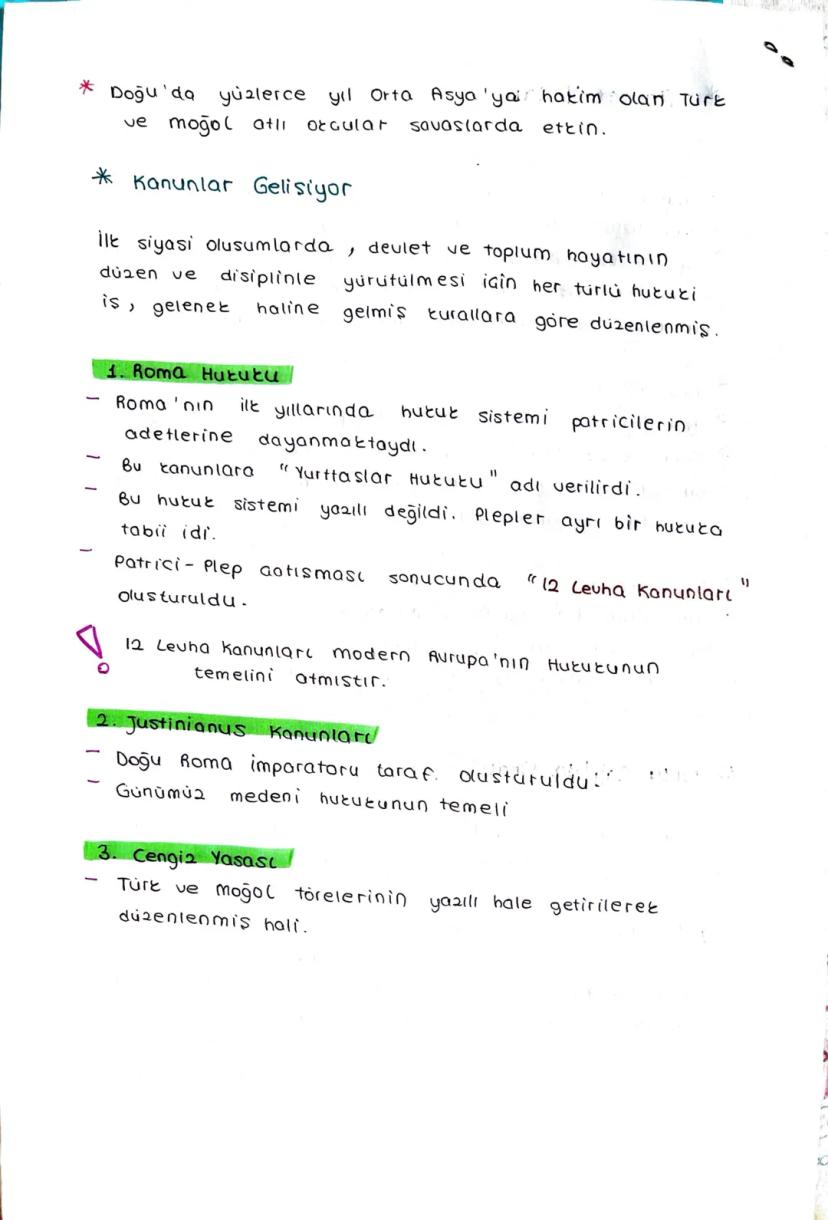 * Doğu'da yüzlerce yıl Orta Asya'ya hakim olan Türk
ve moğol atlı okcular savaslarda etkin.
* Kanunlar Gelisiyor
İlk siyasi olusumlarda, devlet ve toplum hayatının
düzen ve disiplinle yürütülmesi için her türlü hukuki
iş, gelenek haline gelmiş kurallara göre düzenlenmiş.
1. Roma Hukuku
- Roma'nın ilk yıllarında hukuk sistemi patricilerin
adetlerine dayanmaktaydı.
- Bu kanunlara "Yurttaslar Hukuku" adı verilirdi.
- Bu hukuk sistemi yazılı değildi. Plepler ayrı bir hukuka
tabii idi.
- Patrici-Plep catısması sonucunda "12 Levha Kanunları"
olusturuldu.
! 12 Levha Kanunları modern Avrupa'nın Hukukunun
temelini atmıstır.
2. Justinianus Kanunları
- Doğu Roma imparatoru taraf. olusturuldu.
- Günümüz medeni hukukunun temeli
3. Cengiz Yasası
- Türk ve Moğol törelerinin yazılı hale getirilerek
düzenlenmiş hali.